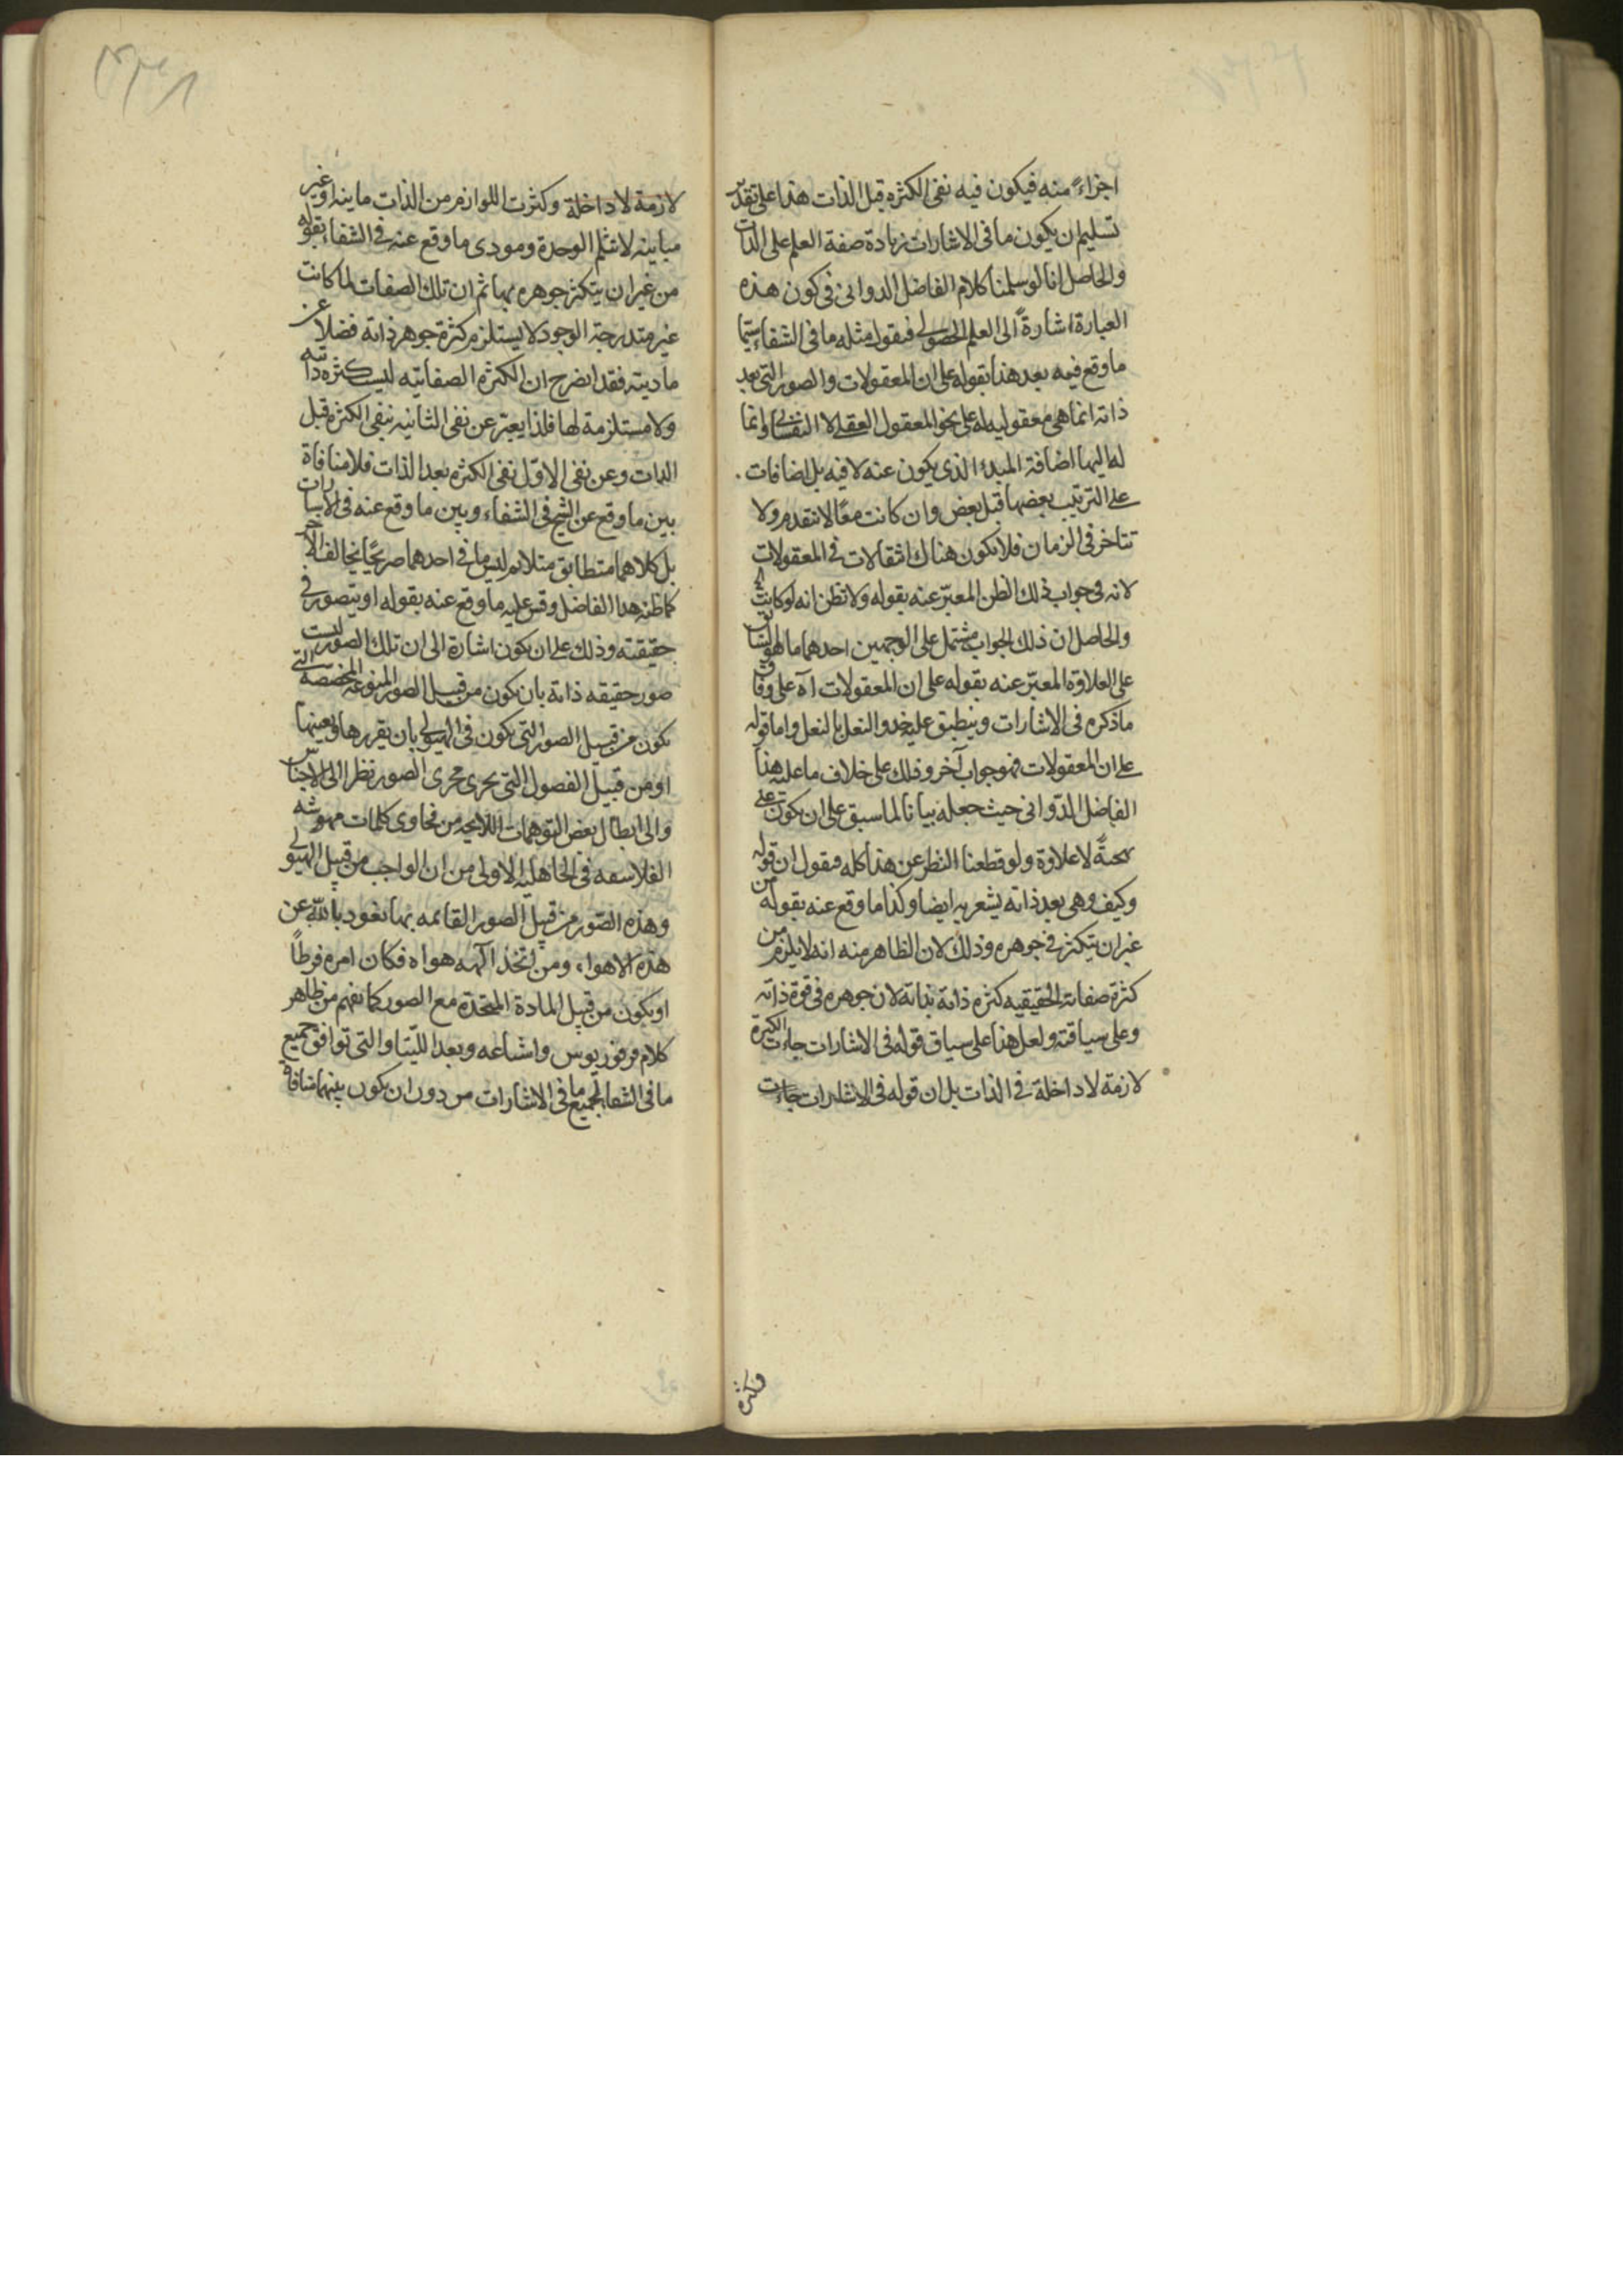 اجزاءً منه فيكون فيه نفى الكثره قبل الذات هذا على تقدير
تسليم ان يكون ما فى الاشارات زيادة صفة العلم على الذات
والحاصل انا لو سلمنا كلام الفاضل الدوانى فى كون هذه
العبارة اشارةً الى العلم الحصولى فنقول مثله ما فى الشفاء سيّما
ما وقع فيه بعد هذا بقوله على ان المعقولات والصور التى بعد
ذاته انما هى معقوليه له على نحو المعقول العقلى لا النفسانى وانما
له اليها اضافة المبدء الذى يكون عنه لا فيه بل اضافات
على الترتيب بعضها قبل بعض وان كانت معًا لا تتقدم ولا
تتاخر فى الزمان فلا يكون هناك انتقالات فى المعقولات
لانه فى جواب ذلك الظن المعبّر عنه بقوله ولا تظن انه لو كانت
والحاصل ان ذلك الجواب مشتمل على الوجهين احدهما ما هو
على العلاوة المعبّر عنه بقوله على ان المعقولات آه على وفاق
ما ذكره فى الاشارات وينطبق عليه حذو النعل بالنعل واما قوله
على ان المعقولات فهو جواب آخر وذلك على خلاف ما عليه هذا
الفاضل الدّوانى حيث جعله بيانا لما سبق على ان يكون على
لا علاوة ولو قطعنا النظر عن هذا كله فنقول ان قوله
وكيف وهى بعد ذاته يشعر به ايضا وكذا ما وقع عنه بقوله من
غير ان يتكثر فى جوهره وذلك لان الظاهر منه انه لا يلزم من
كثرة صفاته الحقيقيه كثره ذاته بذاته لان جوهره فى قوة ذاته
وعلى سياقته ولعل هذا على سياق قوله فى الاشارات جاءت الكثرة
لازمة لا داخلة فى الذات بل ان قوله فى الاشارات جاءت
وكثرة
لازمة لا داخلة وكثرت اللوازم من الذات مباينه او غير
مباينه لا تثلم الوحدة ومودى ما وقع عنه فى الشفاء بقوله
من غير ان يتكثر جوهره بها ثم ان تلك الصفات لما كانت
غير متدرجة الوجود لا يستلزم كثرة جوهر ذاته فضلا عن
ماديته فقد اتضرح ان الكثره الصفاتيه ليست كثره ذاتيه
ولا مستلزمة لها فلذا يعبّر عن نفى الثانيه بنفى الكثره قبل
الذات وعن نفى الاوّل نفى الكثره بعد الذات فلا منافاة
بين ما وقع عن الشيخ فى الشفاء وبين ما وقع عنه فى الاشارات
بل كلاهما متطابق متلائم ليس ما فى احدهما صريحًا يخالف الآخر
كما ظنه هذا الفاضل وقس عليه ما وقع عنه بقوله او يتصور فى
حقيقته وذلك على ان يكون اشارة الى ان تلك الصور ليست
صور حقيقه ذاته بان يكون من قبيل الصور المنوعه المخصصه التى
يكون من قبيل الصور التى يكون فى الهيولى بان يقررها ويعينها
او من قبيل الفصول التى يجرى مجرى الصور نظرا الى الاجناس
والى ابطال بعض التوهمات اللايحه من فحاوى كلمات مهوشه
الفلاسفه فى الجاهليه الاولى من ان الواجب من قبيل الهيولى
وهذه الصّور من قبيل الصور القائمه بها نعوذ بالله عن
هذه الاهواء ومن اتخذ آلهه هواه فكان امره فرطاً
او يكون من قبيل المادة المتحدة مع الصور كما نفهم من ظاهر
كلام فرفوريوس واشياعه وبعد اللتيّا والتى توافق جميع
ما فى الشفا لجميع ما فى الاشارات من دون ان يكون بينهما منافاة